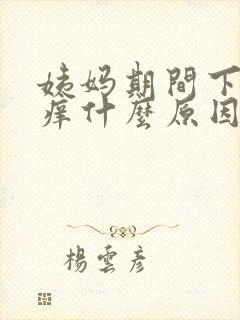 姨妈期間下
痒什麼原因
楊雲彥